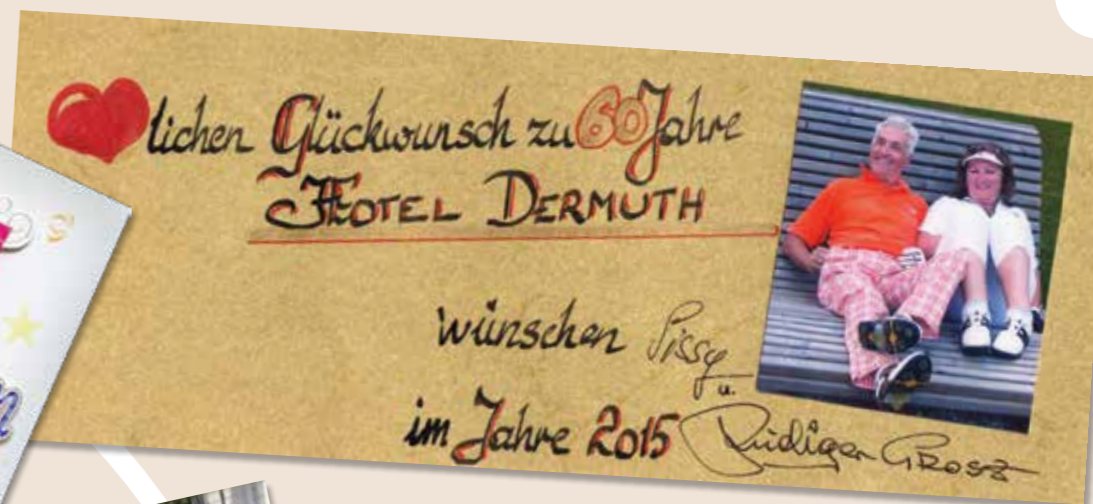 lichen Glückwunsch zu 60 Jahre
HOTEL DERMUTH
wünschen Sissy
u.
im Jahre 2015 Rüdiger GROSZ